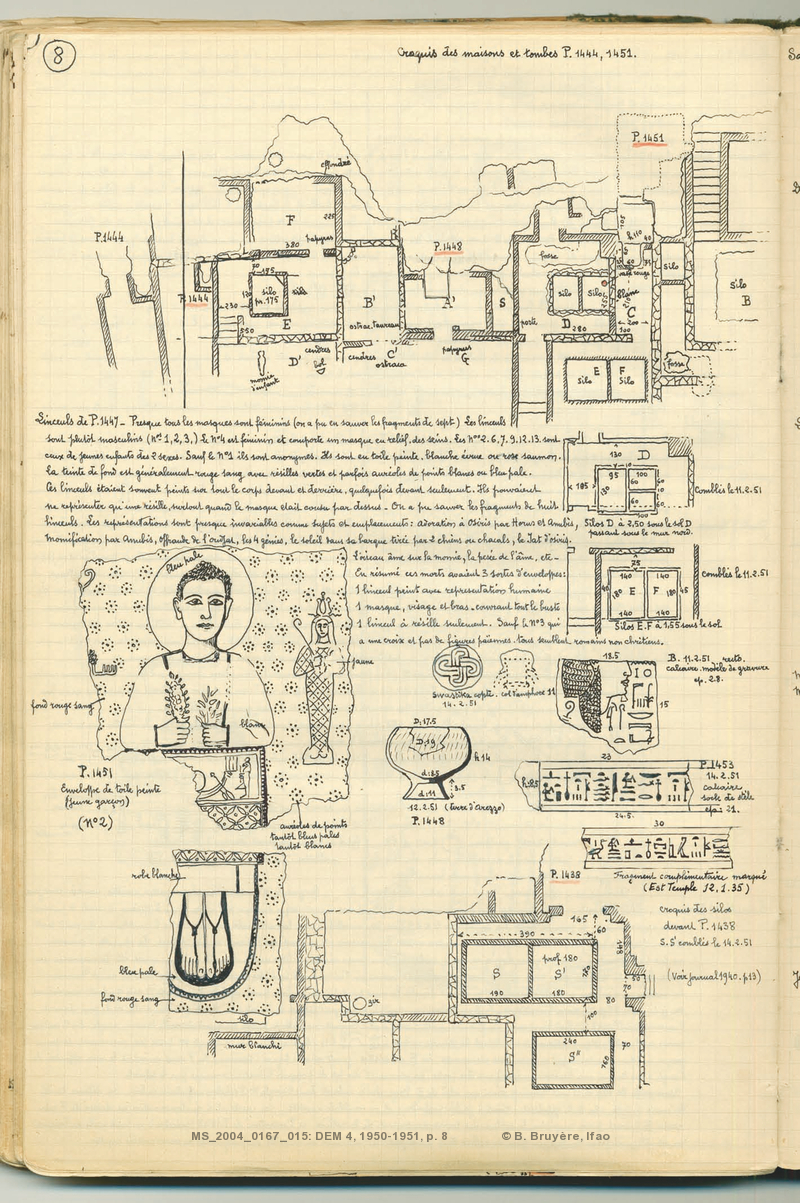 8
Croquis des maisons et tombes P. 1444, 1451.
P. 1451
effondré
F
225
papyrus
380
P. 1444
P. 1444
P. 1448
fosse
silo
silo
pr. 175
185
230
E
550
B'
A'
S
ostraca, taureau
porte
Silo
Silo
D
280
C
200
100
Silo
Silo
B
D'
momie d'enfant
cendres
bol
cendres
C'
ostraca
papyrus
E
F
Silo
Silo
fosse
Linceuls de P. 1447 _ Presque tous les masques sont féminins (on a pu en sauver les fragments de sept) Les linceuls
sont plutôt masculins (nos 1, 2, 3,) le N°4 est féminin et comporte un masque en relief, des seins. Les Nos 2. 6. 7. 9. 12. 13. sont
ceux de jeunes enfants des 2 sexes. Sauf le N°1 ils sont anonymes. Ils sont en toile peinte, blanche écrue ou rose saumon.
La teinte de fond est généralement rouge sang, avec résilles vertes et parfois auréoles de points blancs ou bleu pale.
Ces linceuls étaient souvent peints sur tout le corps devant et derrière, quelquefois devant seulement. Ils pouvaient
ne représenter qu'une résille, surtout quand le masque était cousu par dessus _ On a pu sauver les fragments de huit
linceuls. Les représentations sont presque invariables comme sujets et emplacements: adoration à Osiris par Horus et Anubis,
momification par Anubis, offrande de l'oudjat, les 4 génies, le soleil dans sa barque tirée par 2 chiens ou chacals, le Tat d'osiris.
l'oiseau âme sur la momie, la pesée de l'âme, etc _
En résumé ces morts avaient 3 sortes d'enveloppes:
1 linceul peint avec représentation humaine
1 masque, visage et bras _ couvrant tout le buste
1 linceul à résille seulement. Sauf le N°3 qui
a une croix et pas de figures païennes. tous semblent romains non chrétiens.
D
130
95
100
185
60
60
Comblés le 11.2.51
Silos D à 2,50 sous le sol D
passant sous le mur nord.
75
140
140
E
F
180
180
45
140
140
Comblés le 11.2.51
Silos E.F à 1.55 sous le sol
bleu pale
jaune
fond rouge sang
blanc
P. 1451
Enveloppe de toile peinte
(jeune garçon)
(N°2)
auréoles de points
tantôt bleus pâles
tantôt blancs
Swastika copte.
14. 2. 51
col d'amphore
18.5
15
B. 11.2.51
calcaire. modèle de gravure
ep. 2.8.
D: 17.5
D. 19
h 14
d: 8.5
3.5
d: 11
12.2.51 (terre d'Arezzo)
P. 1448
23
24.5.
P. 1453
14. 2. 51
calcaire
socle de stèle
epa: 21.
30
Fragment complémentaire marqué
(Est Temple 12, 1. 35)
robe blanche
bleu pale
fond rouge sang
silo
mur blanchi
P. 1438
zir
390
165
60
prof 180
S
S'
190
180
80
50
70
100
240
S"
160
70
croquis des silos
devant P. 1438
S. S' comblés le 14.2.51
(Voir journal 1940. p. 13)
MS_2004_0167_015: DEM 4, 1950-1951, p. 8 © B. Bruyère, Ifao